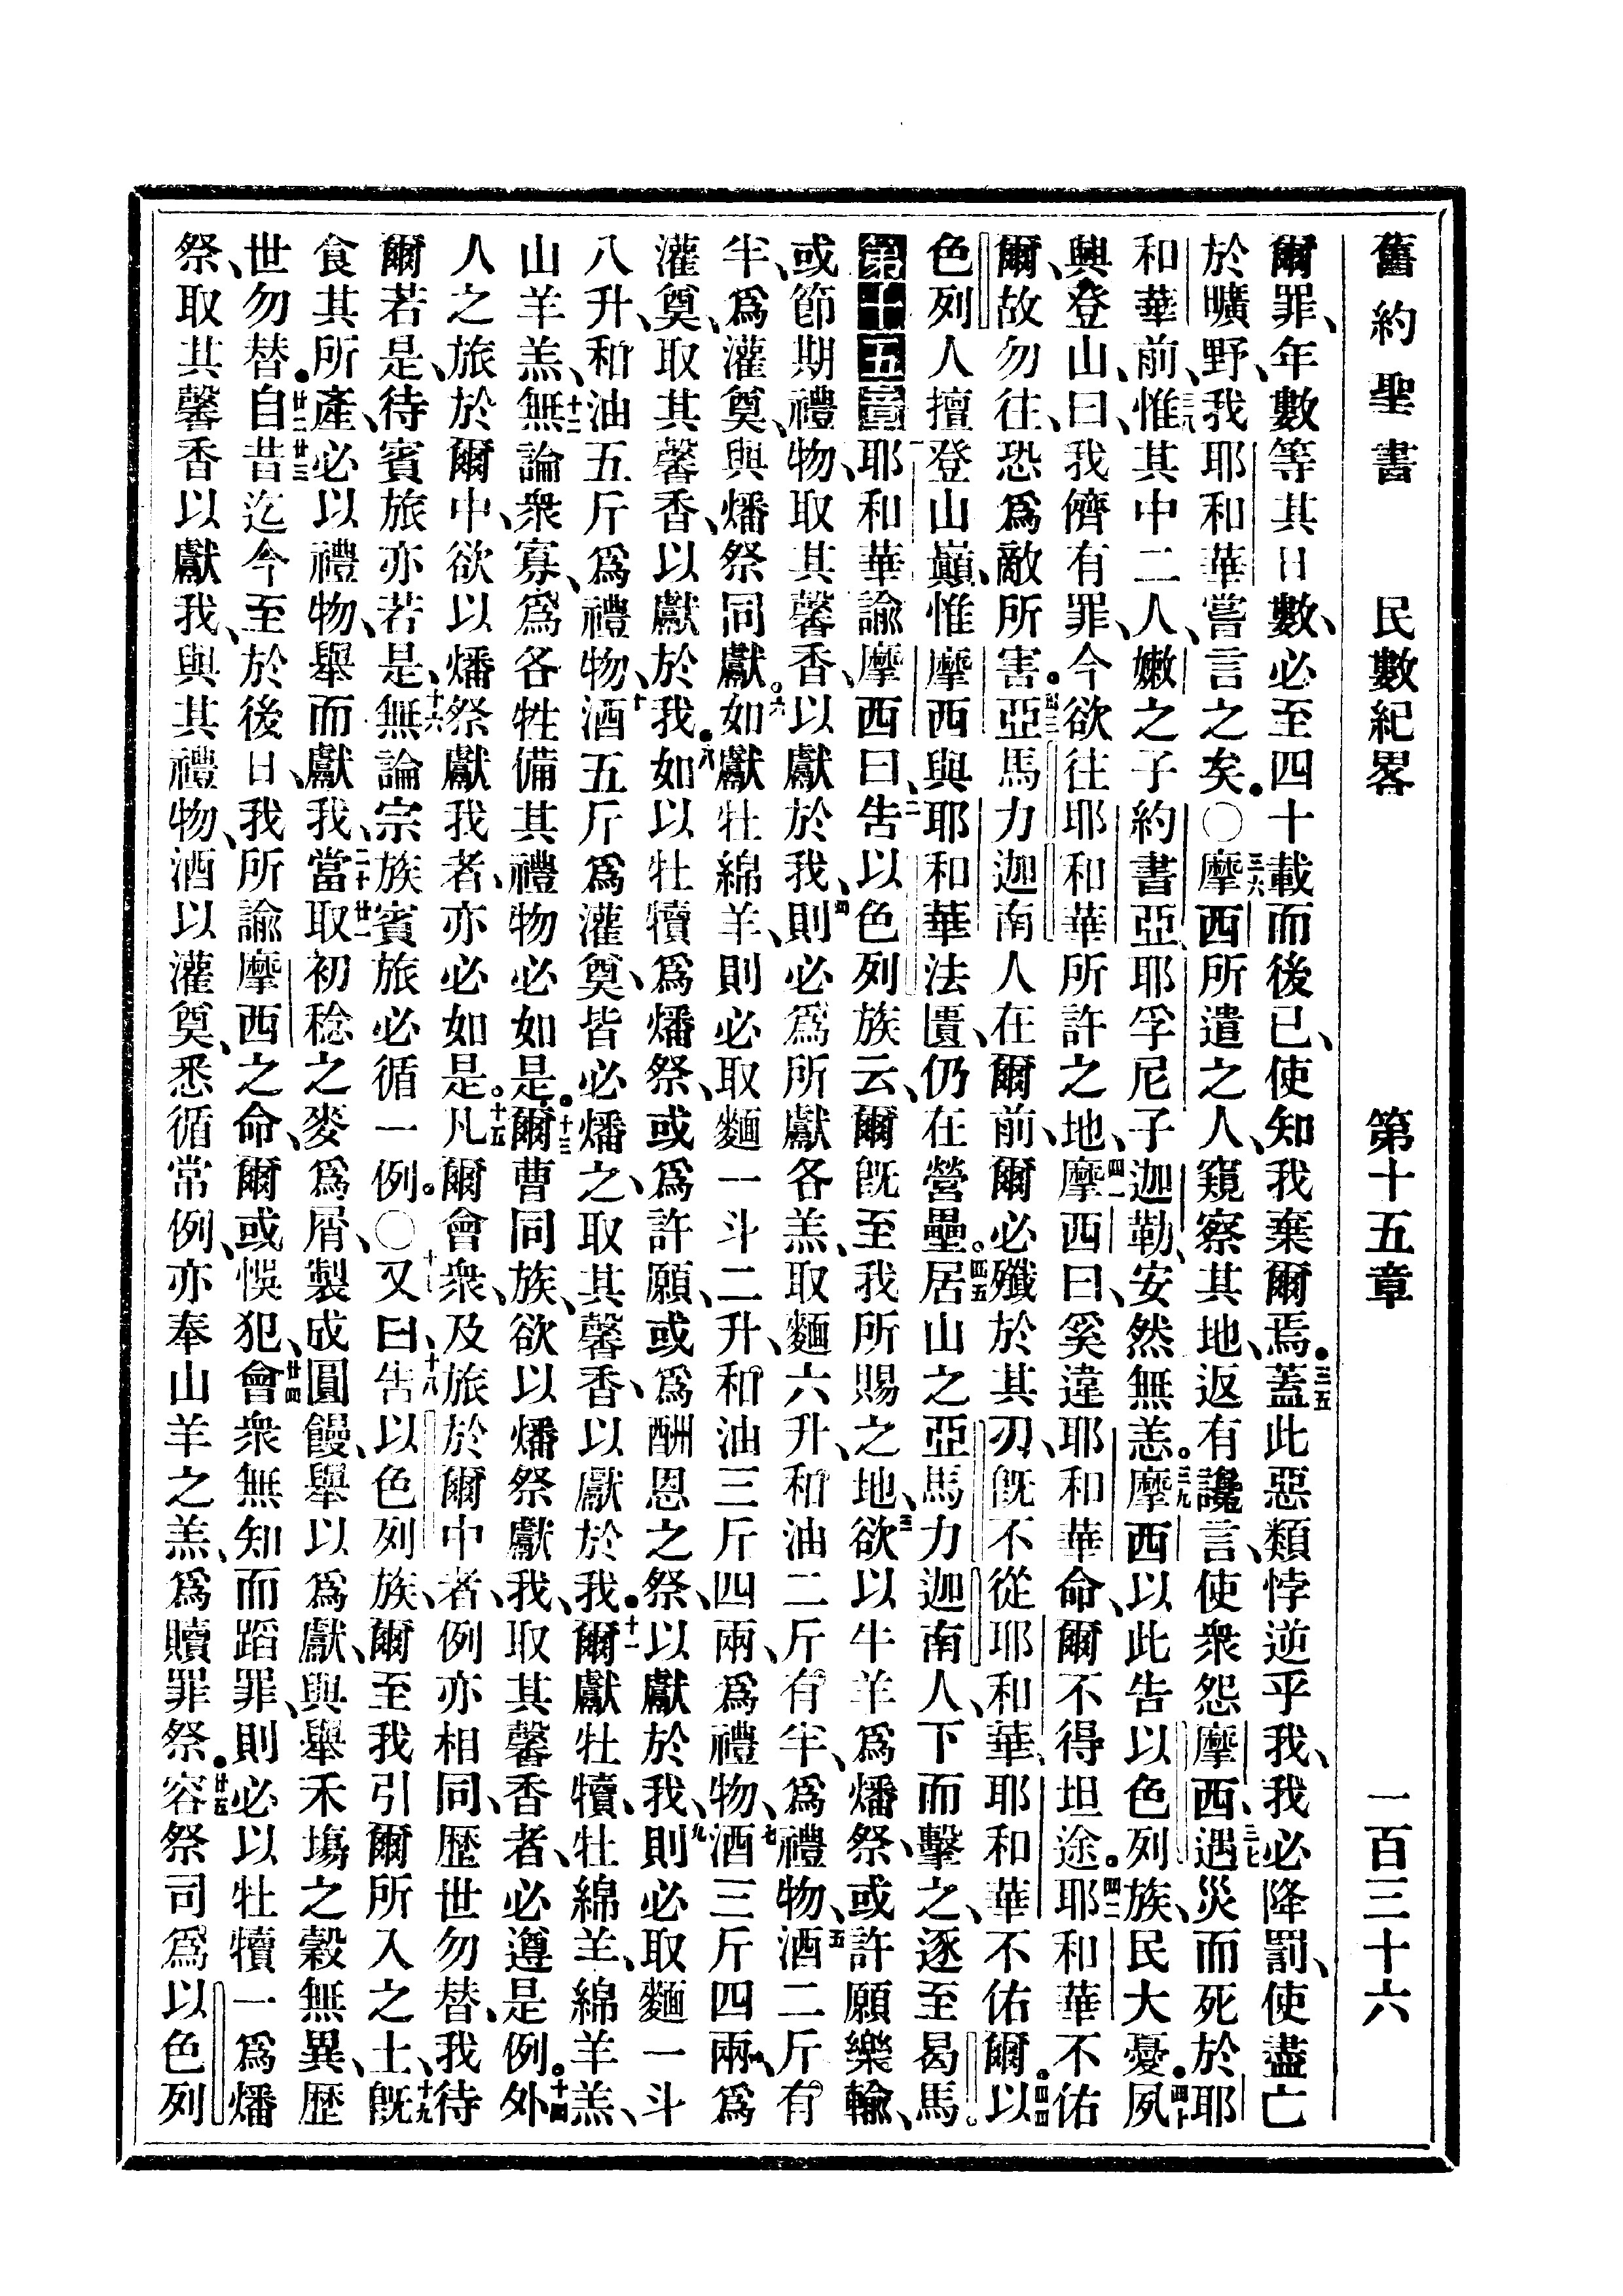 舊約聖書 民數紀畧 第十五章 一百三十六
爾罪、年數等其日數、必至四十載而後已、使知我棄爾焉。三五蓋此惡類悖逆乎我、我必降罰、使盡亡
於曠野、我耶和華嘗言之矣。○三六摩西所遣之人、窺察其地、返有讒言、使衆怨摩西、三七遇災而死於耶
和華前、三八惟其中二人、嫩之子約書亞、耶孚尼子迦勒、安然無恙。三九摩西以此告以色列族、民大憂。四十夙
興登山、曰、我儕有罪、今欲往耶和華所許之地、四一摩西曰、奚違耶和華命、爾不得坦途。四二耶和華不佑
爾、故勿往、恐爲敵所害。四三亞馬力迦南人在爾前、爾必殲於其刃、旣不從耶和華、耶和華不佑爾。四四以
色列人擅登山巔、惟摩西與耶和華法匱、仍在營壘。四五居山之亞馬力迦南人、下而擊之、逐至曷馬。
第十五章耶和華諭摩西曰、二告以色列族云、爾旣至我所賜之地、三欲以牛羊爲燔祭、或許願樂輸、
或節期禮物、取其馨香、以獻於我、四則必爲所獻各羔、取麵六升、和油二斤有半、爲禮物、五酒二斤有
半、爲灌奠、與燔祭同獻。六如獻牡綿羊、則必取麵一斗二升、和油三斤四兩、爲禮物、七酒三斤四兩、爲
灌奠、取其馨香、以獻於我。八如以牡犢爲燔祭、或爲許願、或爲酬恩之祭、以獻於我、九則必取麵一斗
八升、和油五斤爲禮物、十酒五斤爲灌奠、皆必燔之、取其馨香、以獻於我。十一爾獻牡犢、牡綿羊、綿羊羔、
山羊羔、十二無論衆寡、爲各牲備其禮物必如是。十三爾曹同族、欲以燔祭獻我、取其馨香者、必遵是例。十四外
人之旅於爾中、欲以燔祭獻我者、亦必如是。十五凡爾會衆、及旅於爾中者、例亦相同、歷世勿替、我待
爾若是、待賓旅亦若是、十六無論宗族賓旅必循一例。○十七又曰、十八告以色列族、爾至我引爾所入之土、十九旣
食其所產、必以禮物、舉而獻我、二十當廿一取初稔之麥爲屑、製成圓饅、舉以爲獻、與舉禾場之穀無異、歷
世勿替。廿二自廿三昔迄今、至於後日、我所諭摩西之命、爾或悞犯、廿四會衆無知而蹈罪、則必以牡犢一爲燔
祭、取其馨香以獻我、與其禮物、酒以灌奠、悉循常例、亦奉山羊之羔、爲贖罪祭。廿五容祭司爲以色列